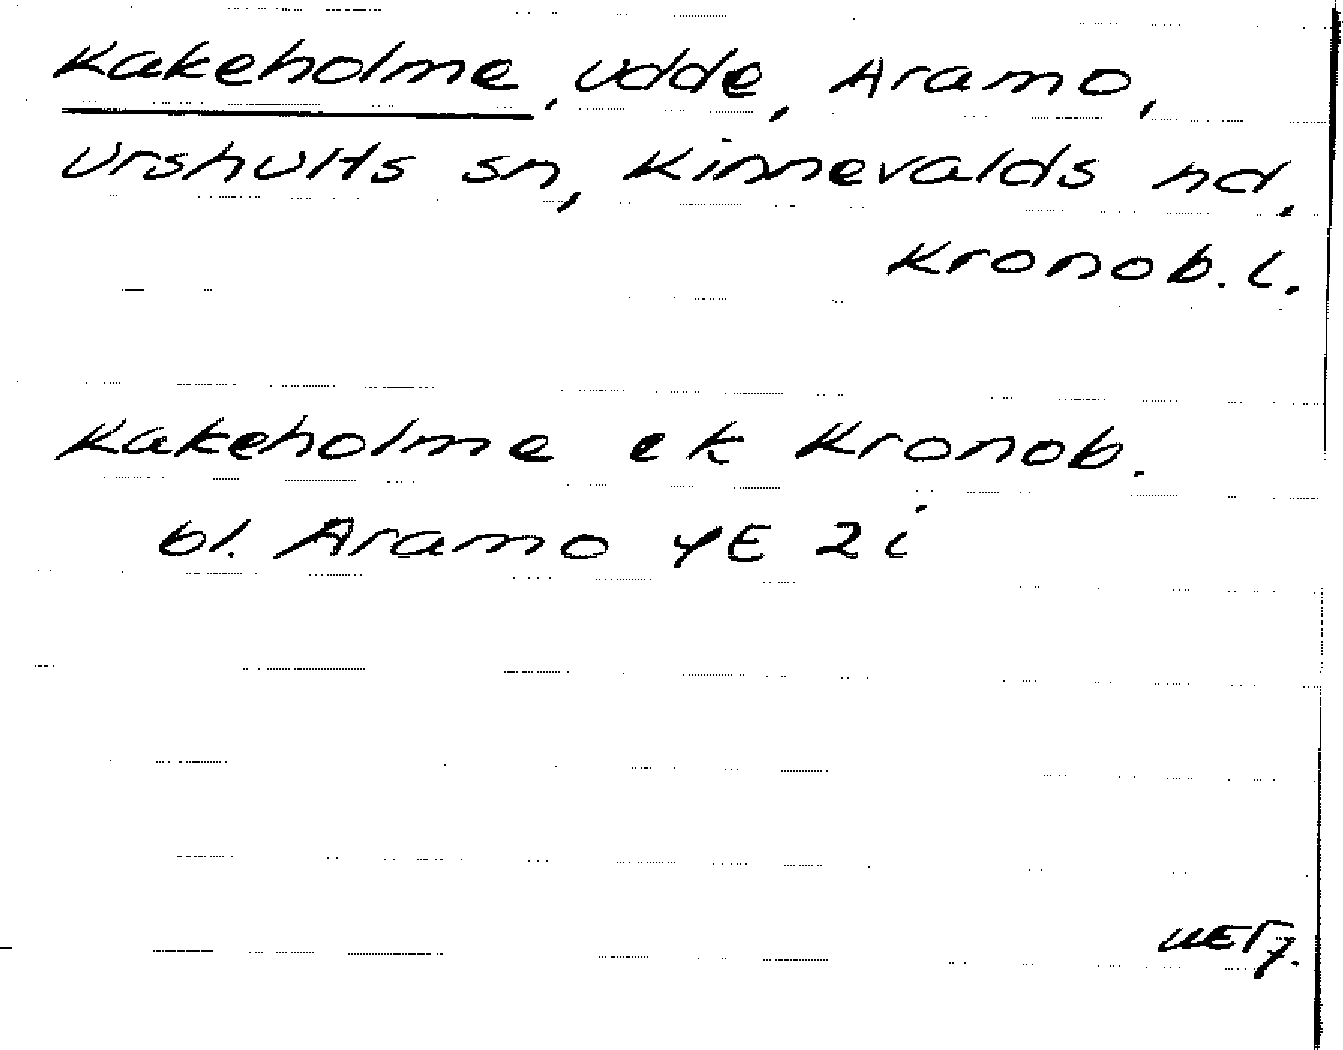 Kakeholme, udde, Aramo,
Urshults sn, Kinnevalds hd,
Kronob. l.
Kakeholme ek Kronob.
bl. Aramo 4E 2i